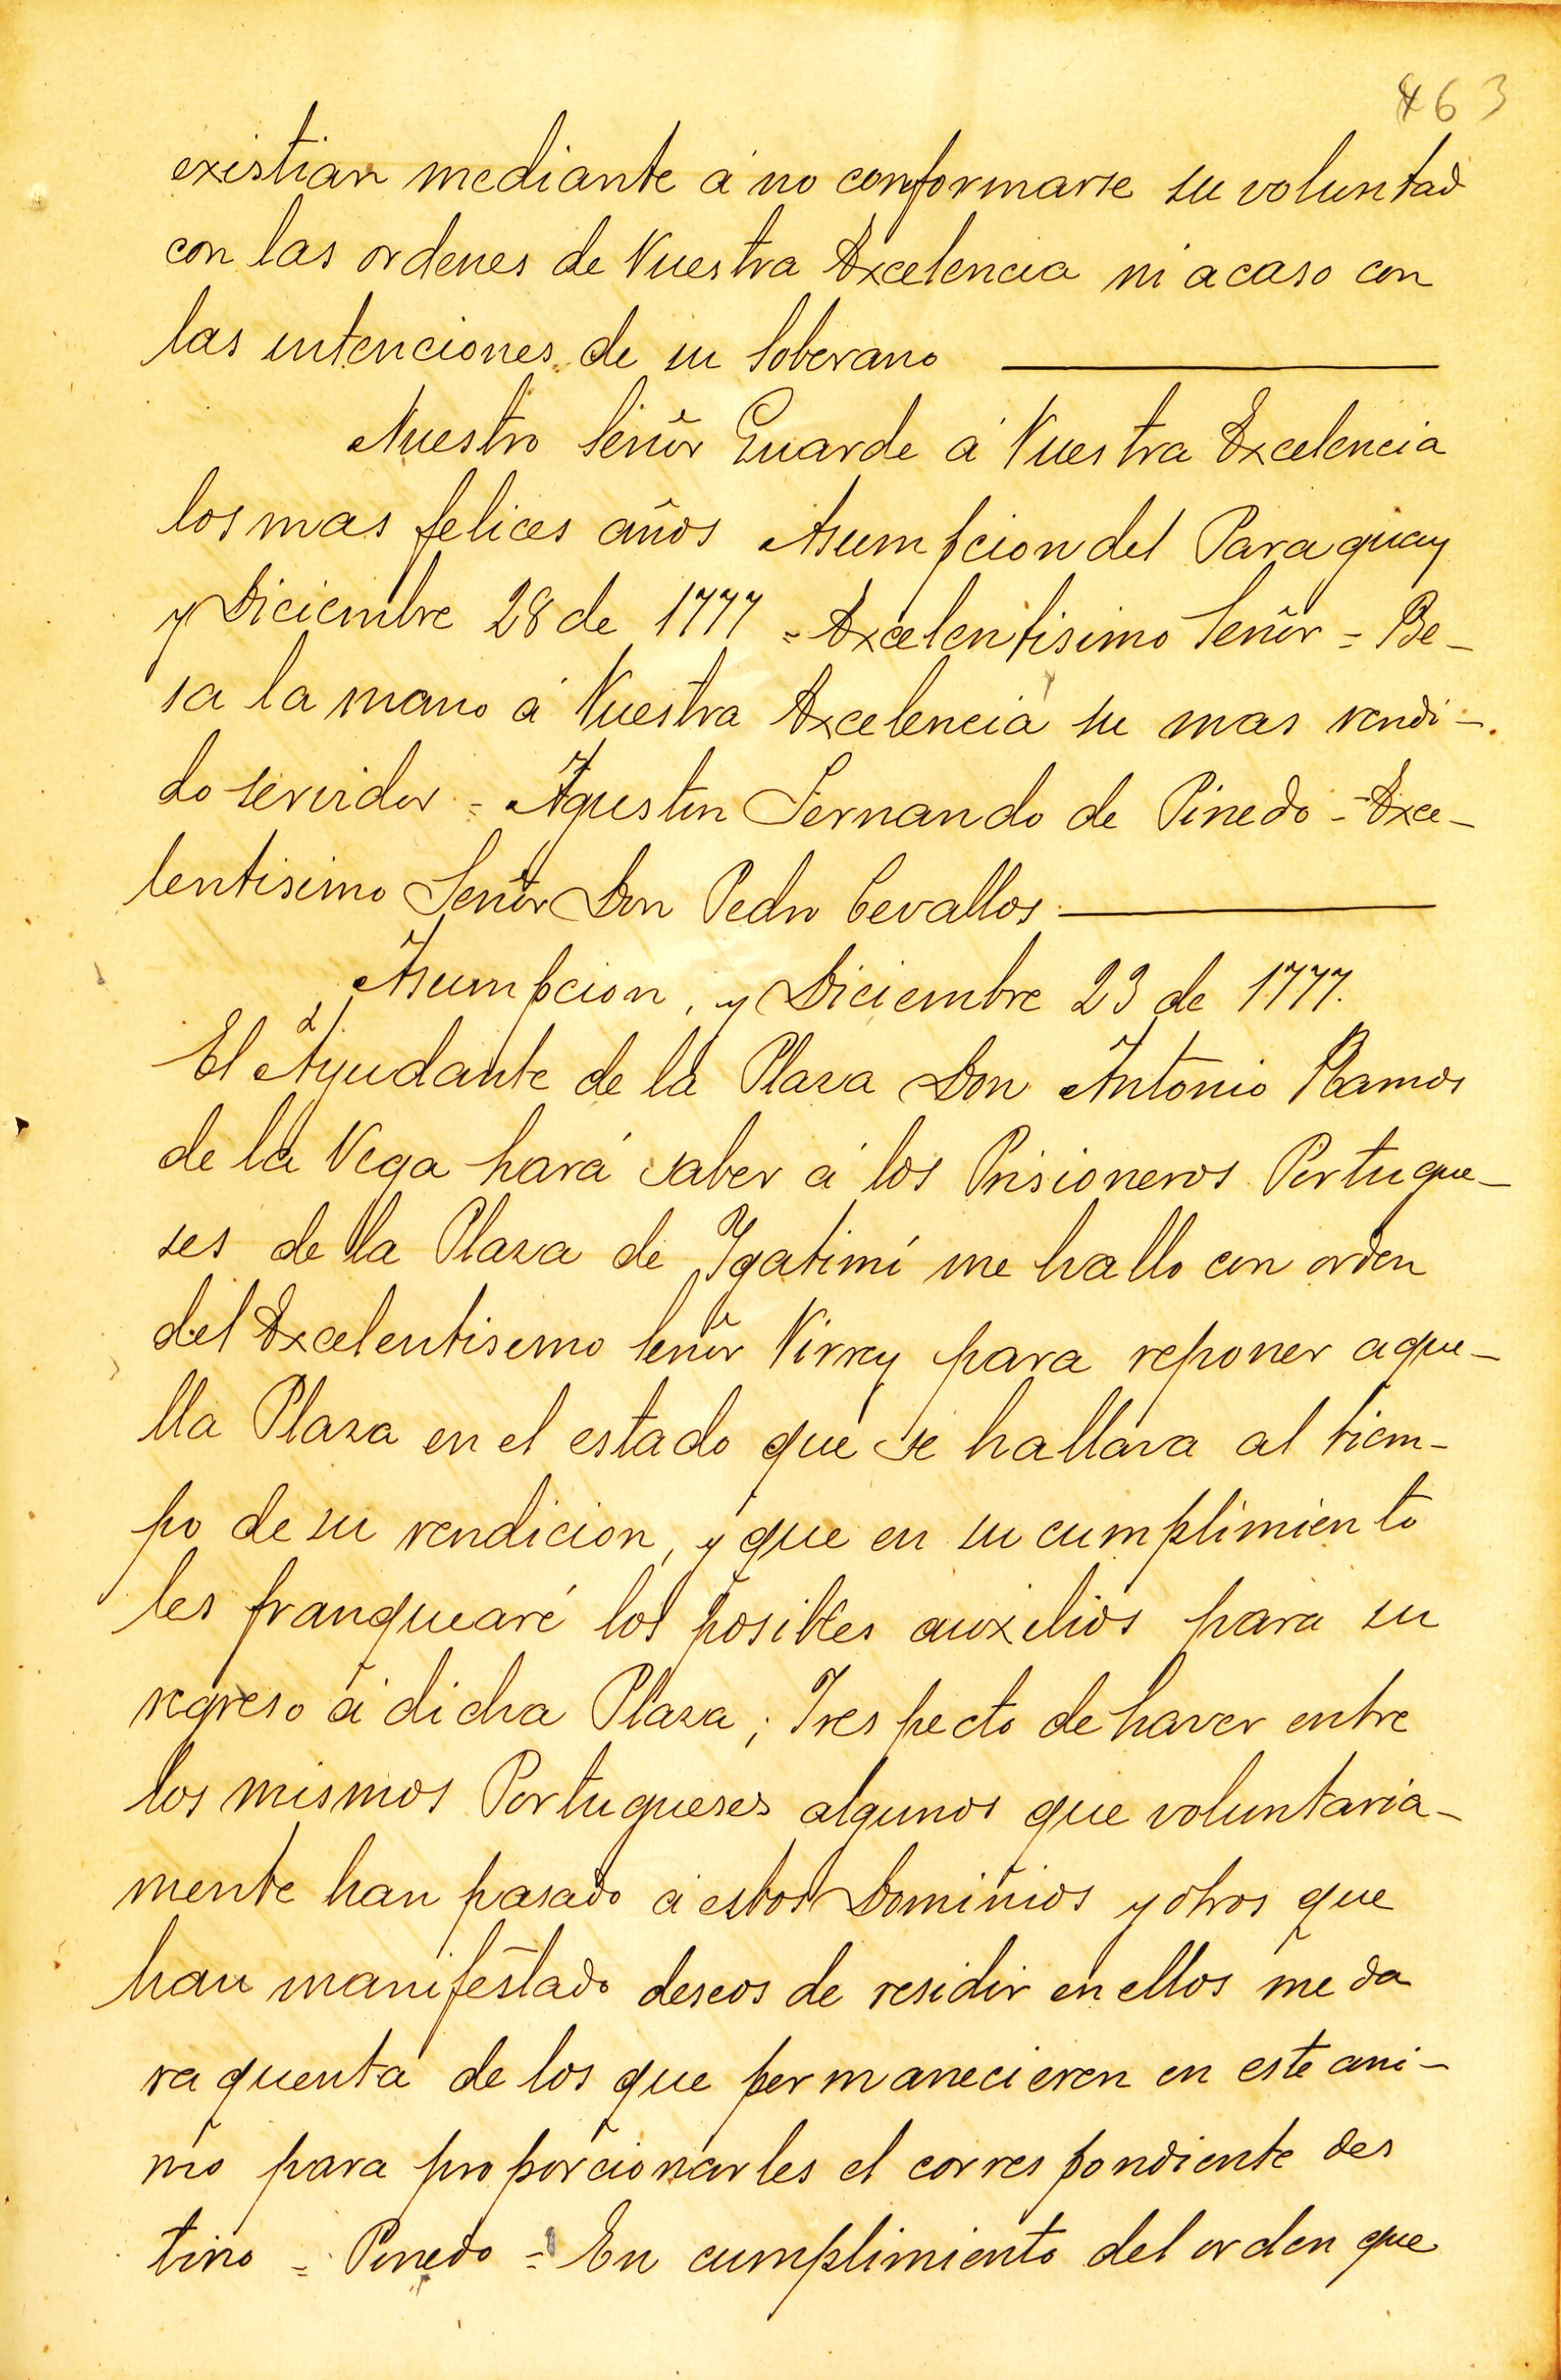 463
existian mediante á no conformarse su voluntad
con las ordenes de Vuestra Excelencia ni acaso con
las intenciones de su Soberano
Nuestro Señor Guarde á Vuestra Excelencia
los mas felices años Asumpcion del Paraguay
y Diciembre 28 de 1777 = Excelentisimo Señor = Be-
sa la mano á Vuestra Excelencia su mas rendi-
do servidor = Agustin Fernando de Pinedo = Exce-
lentisimo Señor Don Pedro Cevallos
Asumpcion, y Diciembre 23 de 1777.
El Ayudante de la Plaza Don Antonio Ramos
de la Vega hará saber á los Prisioneros Portugue-
ses de la Plaza de Ygatimí me hallo con orden
del Excelentisimo Señor Virrey para reponer aque-
lla Plaza en el estado que se hallava al tiem-
po de su rendicion, y que en su cumplimiento
les franquearé los posibles auxilios para su
regreso á dicha Plaza; Y respecto de haver entre
los mismos Portugueses algunos que voluntaria-
mente han pasado á estos Dominios y otros que
han manifestado deseos de residir en ellos me da
ra quenta de los que permanecieren en este ani-
mo para proporcionarles el correspondiente des
tino = Pinedo = En cumplimiento del orden que